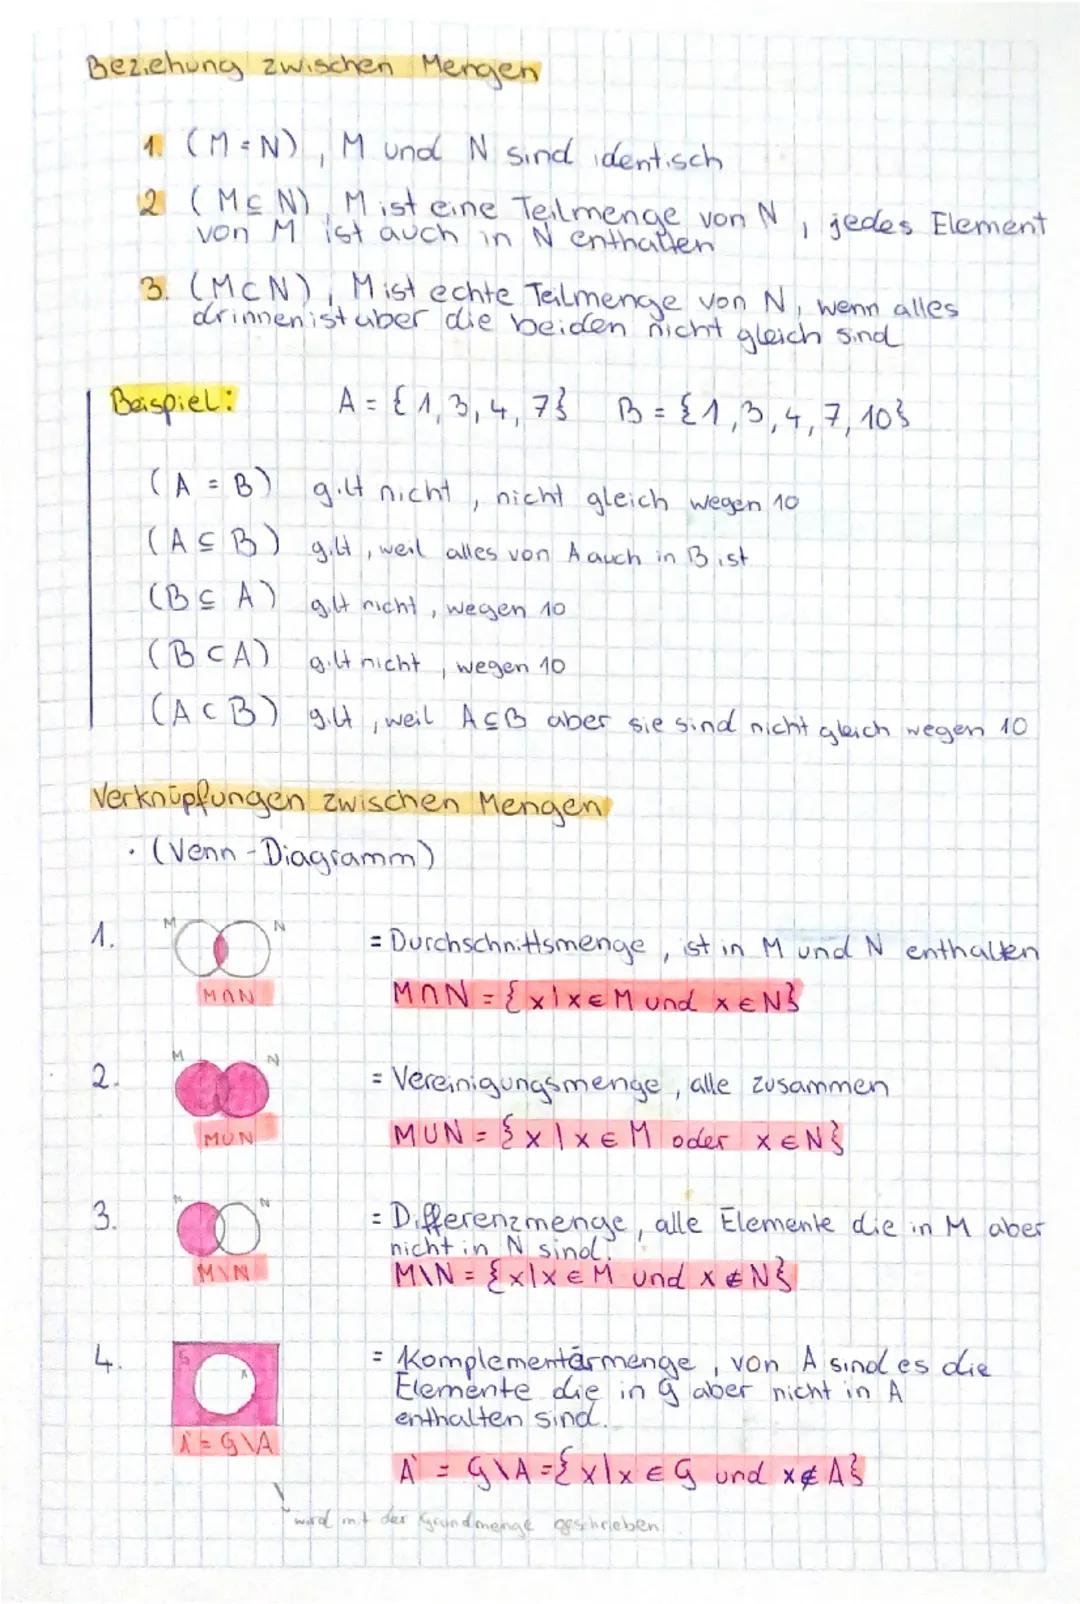 Beziehung zwischen Mengen
1. (M = N), M und N sind identisch
2 (M ⊆ N), M ist eine Teilmenge von N, jedes Element
von M ist auch in N enthalten
3. (M ⊂ N), M ist echte Teilmenge von N, wenn alles
drinnen ist aber die beiden nicht gleich sind
Beispiel: A = {1, 3, 4, 7} B = {1, 3, 4, 7, 10}
(A = B) gilt nicht, nicht gleich wegen 10
(A ⊆ B) gilt, weil alles von A auch in B ist
(B ⊆ A) gilt nicht, wegen 10
(B ⊂ A) gilt nicht, wegen 10
(A ⊂ B) gilt, weil A ⊆ B aber sie sind nicht gleich wegen 10
Verknüpfungen zwischen Mengen
· (Venn-Diagramm)
1. M N = Durchschnittsmenge, ist in M und N enthalten
M∩N M∩N = {x|x∈M und x∈N}
2. M N = Vereinigungsmenge, alle zusammen
M∪N M∪N = {x|x∈M oder x∈N}
3. M N = Differenzmenge, alle Elemente die in M aber
nicht in N sind.
M\N M\N = {x|x∈M und x∉N}
4. G A = Komplementärmenge, von A sind es die
Elemente die in G aber nicht in A
enthalten sind.
A' = G\A A' = G\A = {x|x∈G und x∉A}
wird mit der Grundmenge geschrieben